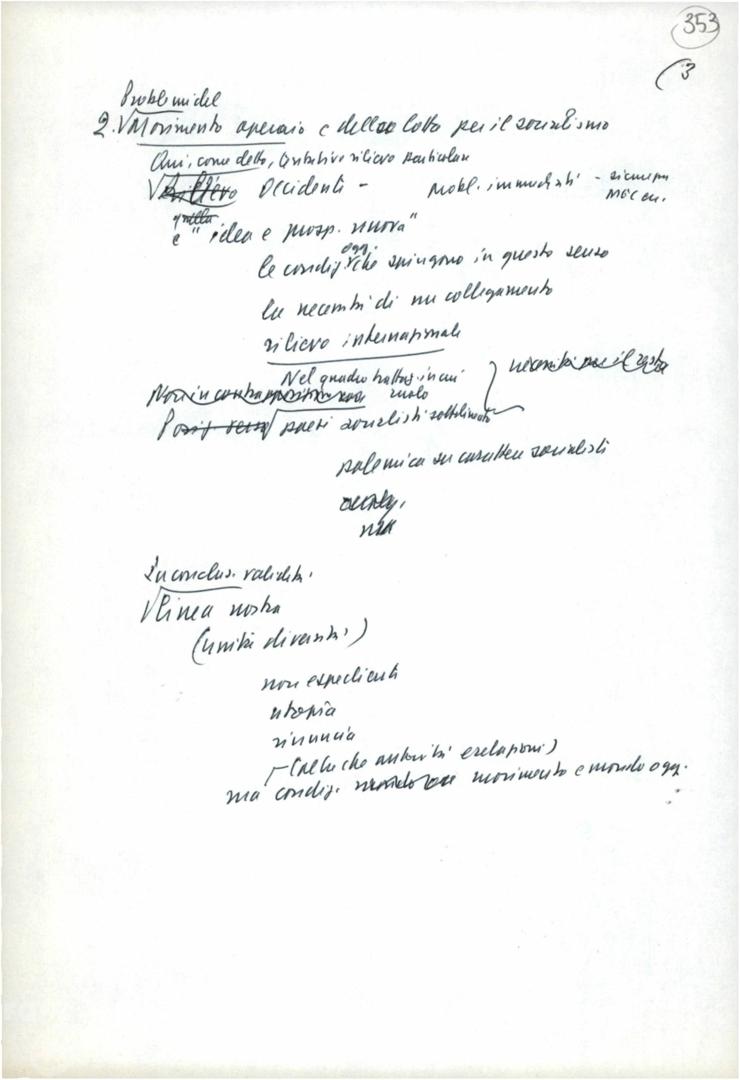 353
(3
Problemi del
2. Movimento operaio e della lotta per il socialismo
Qui, come detto, tentativo rilievo particolare
Rilievo Occidente - Probl. immediati - sicurezza
MEC
quella
e "idea e prosp. nuova"
ogg.
le condiz. che spingono in questo senso
la necessità di un collegamento
rilievo internazionale
Nel quadro
Non in contrapposizione ruolo
paesi socialisti sottolineato
polemica su carattere socialisti
In conclus. validità
linea nostra
(unità diversità)
non espedienti
utopia
rinuncia
(altre che autorità e relazioni)
ma condiz. movimento e mondo ogg.